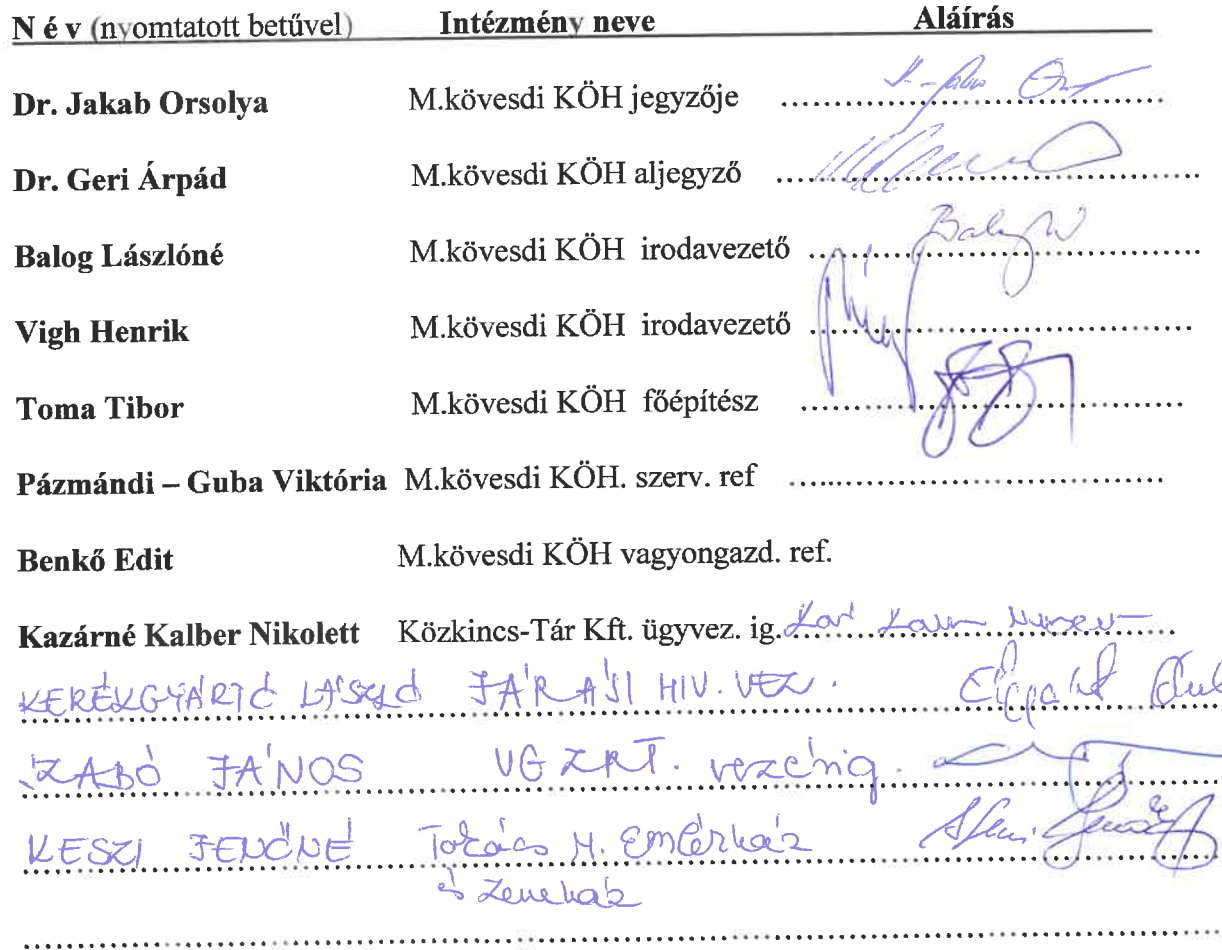 N é v (nyomtatott betűvel) Intézmény neve Aláírás
Dr. Jakab Orsolya M.kövesdi KÖH jegyzője
Dr. Geri Árpád M.kövesdi KÖH aljegyző
Balog Lászlóné M.kövesdi KÖH irodavezető
Vigh Henrik M.kövesdi KÖH irodavezető
Toma Tibor M.kövesdi KÖH főépítész
Pázmándi – Guba Viktória M.kövesdi KÖH. szerv. ref
Benkő Edit M.kövesdi KÖH vagyongazd. ref.
Kazárné Kalber Nikolett Közkincs-Tár Kft. ügyvez. ig.
KERÉKGYÁRTÓ LÁSZLÓ JÁRÁSI HIV. VEZ.
SZABÓ JÁNOS VG ZRT. vezérig.
KESZI JENŐNÉ Takács M. Emlékház
és Zeneház